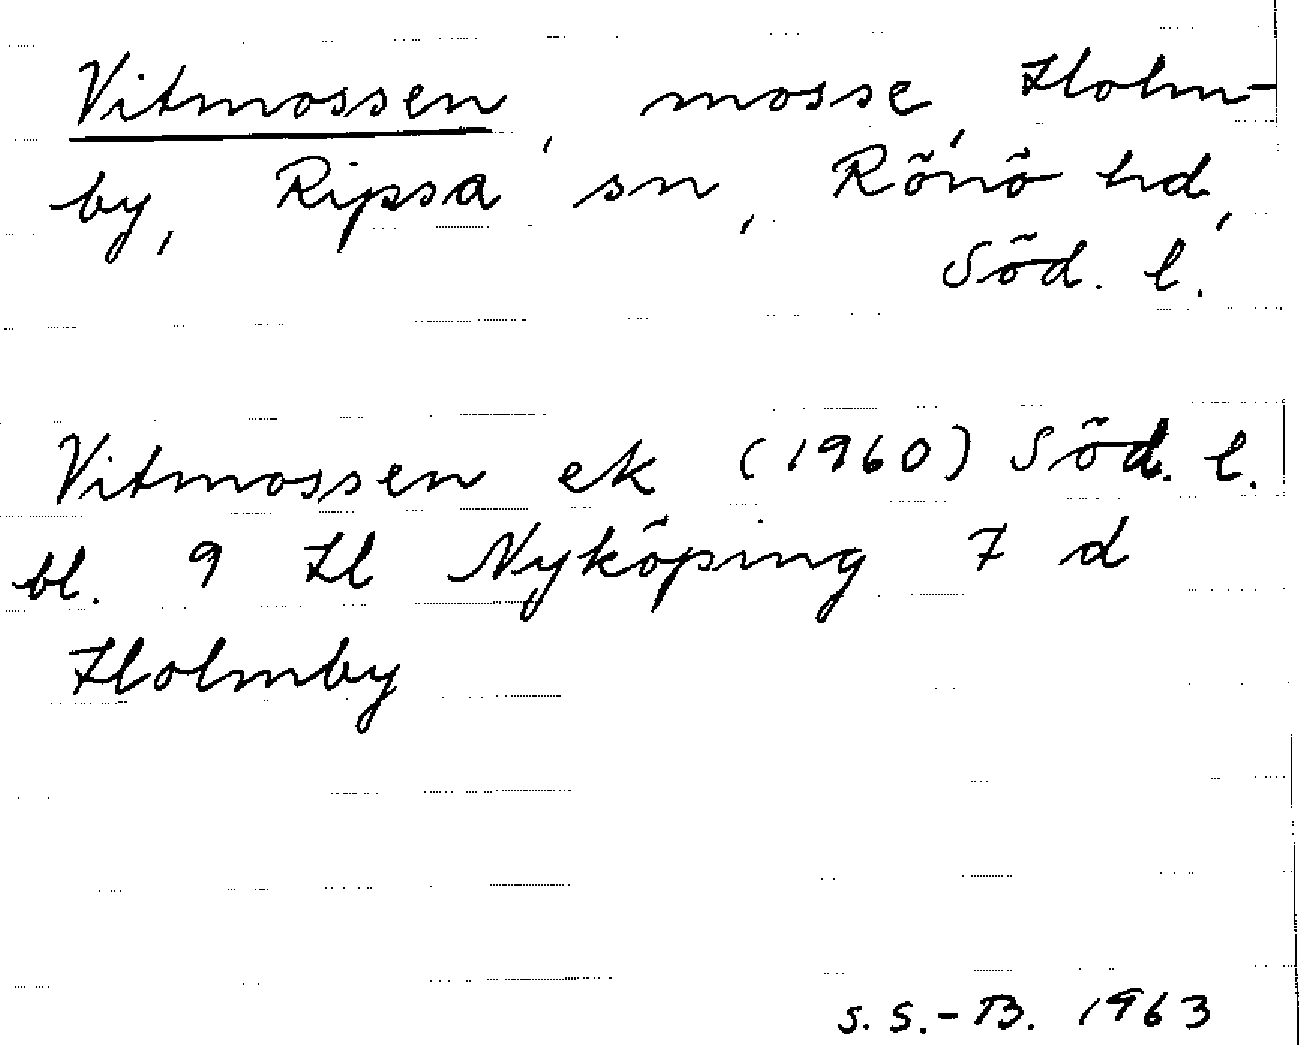 Vitmossen, mosse, Holm-
by, Ripsa sn, Rönö hd,
Söd. l.
Vitmossen ek (1960) Söd. l.
bl. 9 H Nyköping 7 d
Holmby
S. S.-B. 1963